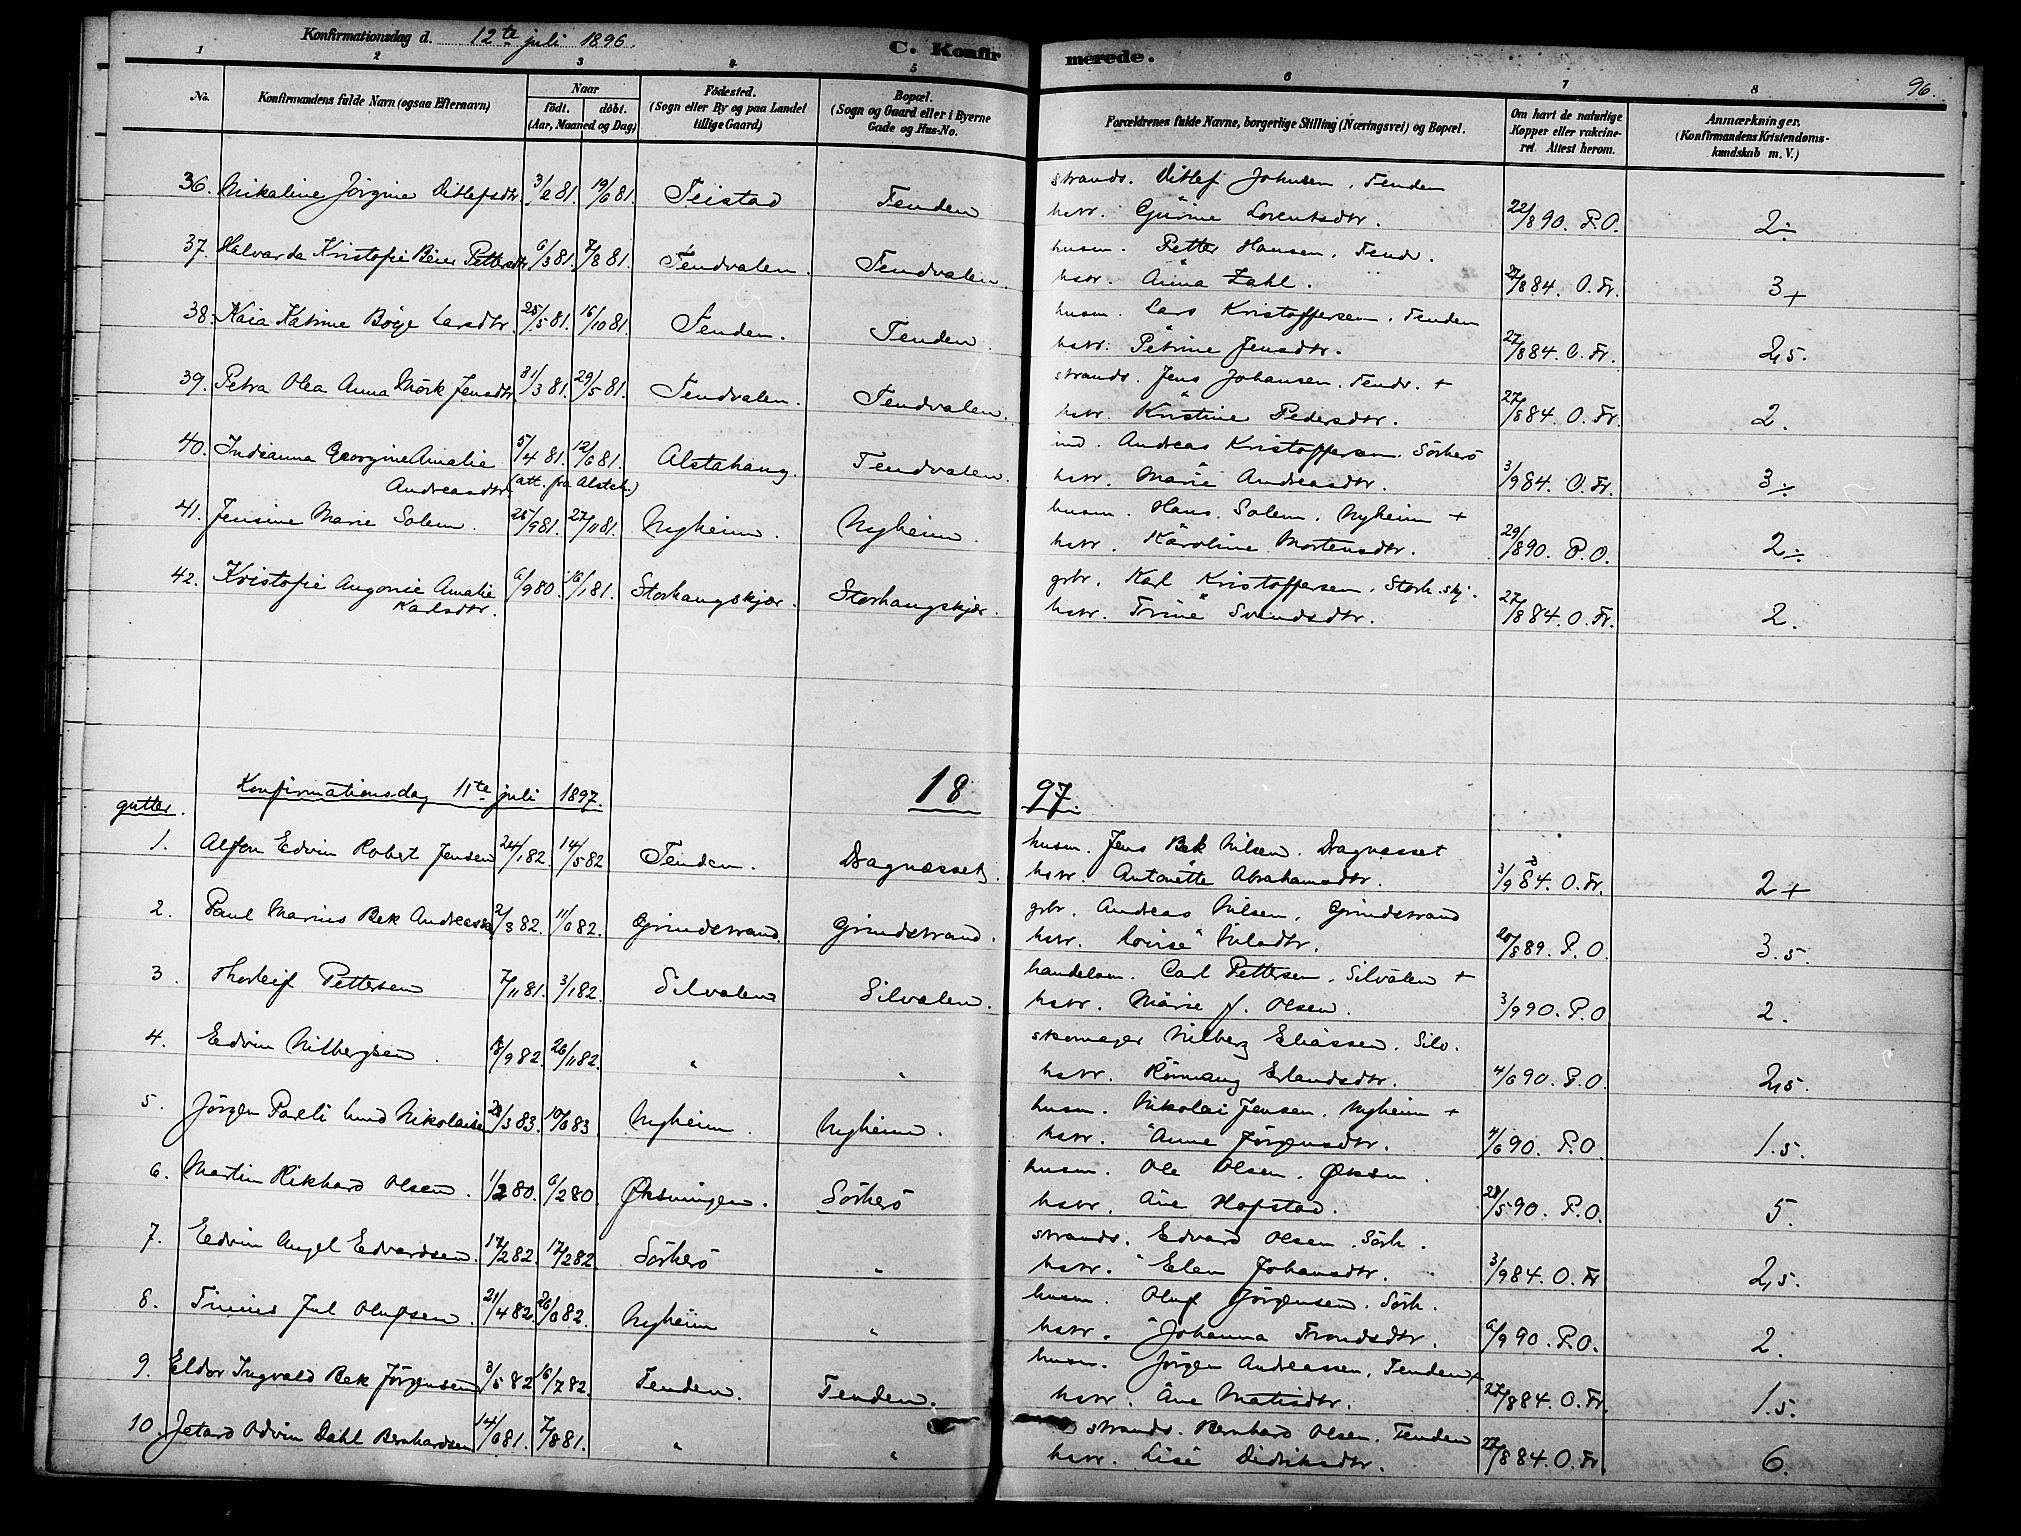 Konfirmationsdag d. 12te juli 1896.
C. Konfirmerede.
96.
1 2 3 4 5 6 7 8
No.
Konfirmandens fulde Navn (ogsaa Efternavn)
Naar
født. døbt.
(Aar, Maaned og Dag)
Fødested.
(Sogn eller By og paa Landet
tillige Gaard)
Bopæl.
(Sogn og Gaard eller i Byerne
Gade og Hus-No.
Forældrenes fulde Navne, borgerlige Stilling (Næringsvei) og Bopæl.
Om havt de naturlige
Kopper eller vakcine-
ret. Attest herom.
Anmærkninger.
(Konfirmandens Kristendoms-
kundskab m. V.)
36. Mikaline Jørgine Ditlefsdtr. 3/2 81. 19/6 81. Teistad Tenden strands. Ditlef Johnsen, Tenden
hstr. Gurine Lorentsdtr. 22/8 90. P.O. 2÷
37. Halvarda Kristofie Beier Pettersdtr 6/3 81. 7/8 81. Tendvalen. Tendvalen husm. Petter Hansen, Tendv.
hstr. Anna Zahl. 27/8 84. O. Fr. 3+
38. Kaia Katrine Böye Larsdtr. 25/5 81. 16/10 81. Tenden. Tenden. husm. Lars Kristoffersen, Tenden
hstr. Petrine Jensdtr. 27/8 84. O. Fr. 2,5.
39. Petra Olea Anna Mörk Jensdtr. 31/3 81. 29/5 81. Tendvalen. Tendvalen. strands. Jens Johansen, Tendv. +
hstr. Kristine Pedersdtr. 27/8 84. O. Fr. 2.
40. Indianna Georgine Amalie 5/4 81. 12/6 81. Alstahaug. Tendvalen. ind. Andreas Kristoffersen, Sörherö
Andreasdtr. (att. fra Alstah.) hstr. Marie Andreasdtr. 3/9 84. O. Fr. 3÷
41. Jensine Marie Solem. 25/9 81. 27/11 81. Nyheim. Nyheim. husm. Hans Solem, Nyheim +
hstr. Karoline Mortensdtr. 29/8 90. P.O. 2÷
42. Kristofie Angonie Amalie 6/9 80. 16/1 81. Storhaugskjær. Storhaugskjær. gbr. Karl Kristoffersen, Storh.skj.
Karlsdtr. hstr. Trine Svendsdtr. 27/8 84. O. Fr. 2.
Konfirmationsdag 11te juli 1897.
1897.
gutter.
1. Alfon Edvin Robert Jensen 24/1 82. 14/5 82 Tenden. Dragnæsset. husm. Jens Bek Nilsen. Dragnesset
hstr. Antonette Abrahamsdtr. 3/9 84. O. Fr. 2+
2. Paul Marius Bek 2/3 82. 11/6 82. Grindstrand. Grindstrand. gbr. Andreas Nilsen, Grindstrand
hstr. Lovise Nilsdtr. 20/8 89. P.O. 3.5.
3. Thorleif Pettersen 7/11 81. 3/1 82. Silvalen Silvalen. handelsm. Carl Pettersen, Silvalen +
hstr. Marie f. Olsen. 3/9 90. P.O 2.
4. Edvin Nilbergsen. 18/9 82. 26/11 82. " " skomager Nilberg Eliassen. Silv.
hstr. Erlandsdtr. 4/6 90. P.O. 2,5.
5. Jörgen Pareli Lund Nikolaisen 28/3 83. 10/6 83 Nyheim. Nyheim. husm. Nikolai Jensen, Nyheim +
hstr. Anne Jörgensdtr. 4/6 90. P.O. 1.5.
6. Martin Rikhard Olsen. 1/2 80. 6/2 80. Øksningen. Sörherö husm. Ole Olsen, Øksn.
hstr. Ane Hofstad. 28/5 90. P.O. 5.
7. Edvin Angel Edvardsen. 17/2 82. 17/2 82. Sörherö " strands. Edvard Olsen, Sörh.
hstr. Elen Johansdtr. 3/9 84. O. Fr 2,5.
8. Jul Olufsen. 21/4 82. 26/6 82. Nyheim " husm. Oluf Jörgensen. Sörh.
hstr. Johanna Trondsdtr. 6/9 90. P.O. 2.
9. Eldor Ingvald Bek Jörgensen 3/5 82 16/7 82. Tenden. Tenden. husm. Jörgen Andreassen, Tenden +
hstr. Ane Matisdtr. 27/8 84. O. Fr. 1.5.
10. Jetard Odvin Dahl Bernhardsen 14/6 81. 7/8 81. " " strands. Bernhard Olsen, Tenden
hstr. Lise Didriksdtr. 27/8 84. O. Fr. 6.